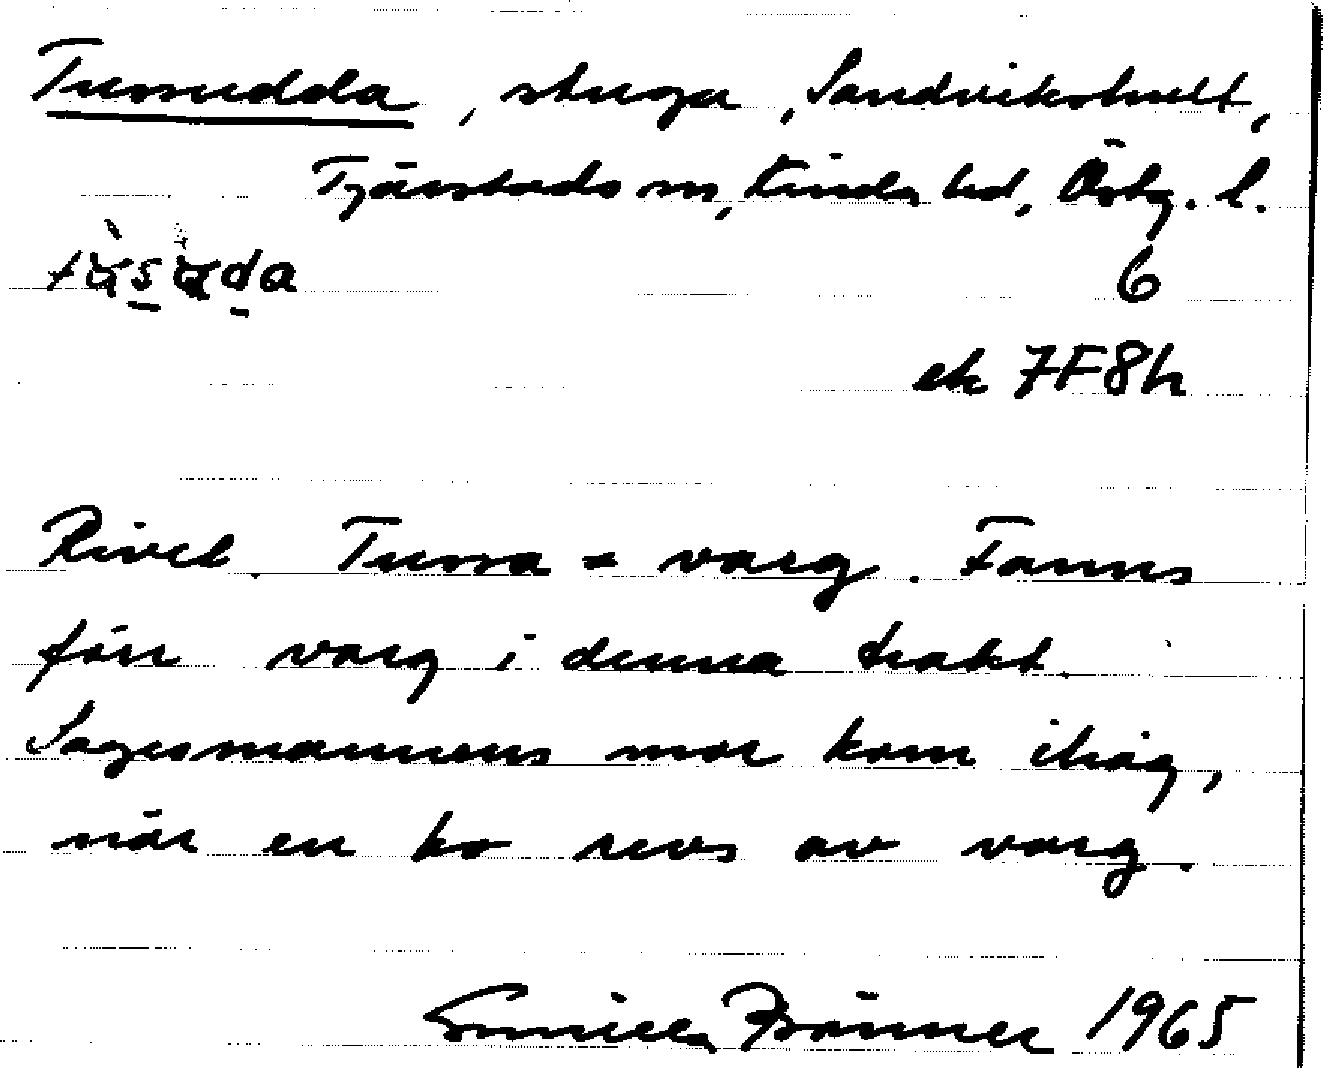 Tussudda, stuga, Sandvikshult,
Tjärstads sn, Kinda hd, Östg. l.
6
ek 7F8h
Rivet. Tussa = varg. Fanns
förr varg i denna trakt.
Sagesmannens mor kom ihåg,
när en ko revs av varg.
Gunilla Brånner 1965